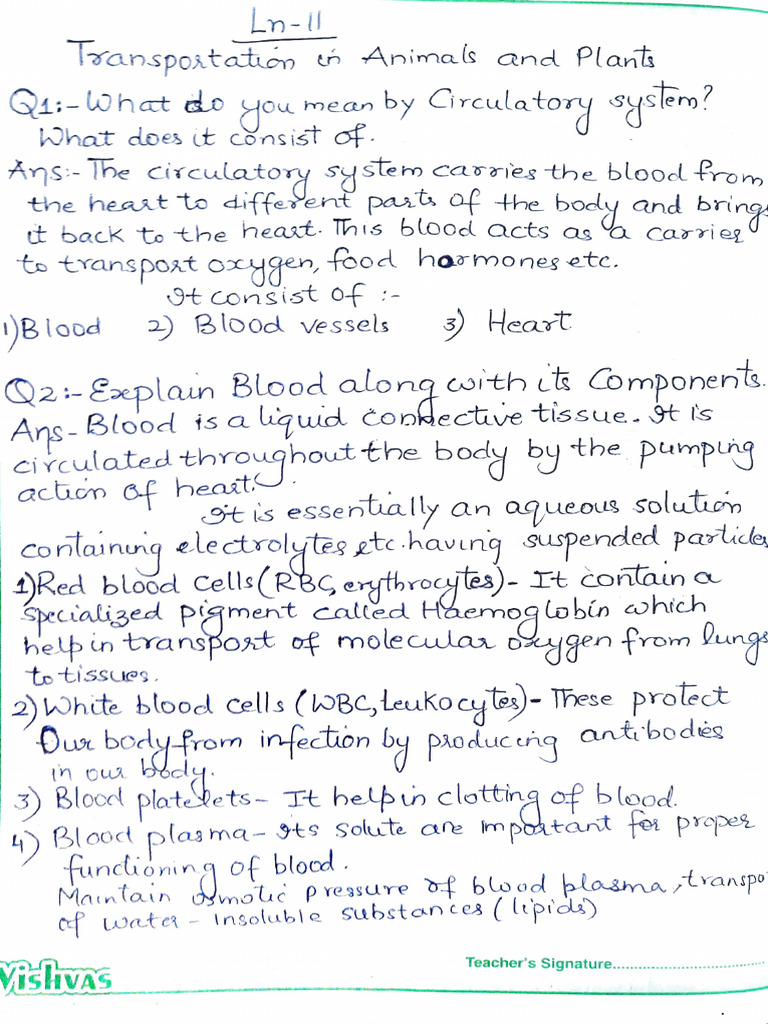 Ln-11
Transportation in Animals and Plants
Q1:- What do you mean by Circulatory system?
What does it consist of.
Ans:- The circulatory system carries the blood from
the heart to different parts of the body and brings
it back to the heart. This blood acts as a carrier
to transport oxygen, food hormones etc.
It consist of :-
1) Blood 2) Blood vessels 3) Heart
Q2:- Explain Blood along with its Components.
Ans- Blood is a liquid connective tissue. It is
circulated throughout the body by the pumping
action of heart.
It is essentially an aqueous solution
containing electrolytes etc. having suspended particles
1) Red blood cells (RBC, erythrocytes)- It contain a
specialized pigment called Haemoglobin which
help in transport of molecular oxygen from lungs
to tissues.
2) White blood cells (WBC, Leukocytes)- These protect
Our body from infection by producing antibodies
in our body.
3) Blood platelets- It help in clotting of blood.
4) Blood plasma- Its solute are important for proper
functioning of blood.
Maintain osmotic pressure of blood plasma, transpo
of water - insoluble substances (lipids)
Teacher's Signature
Vishvas